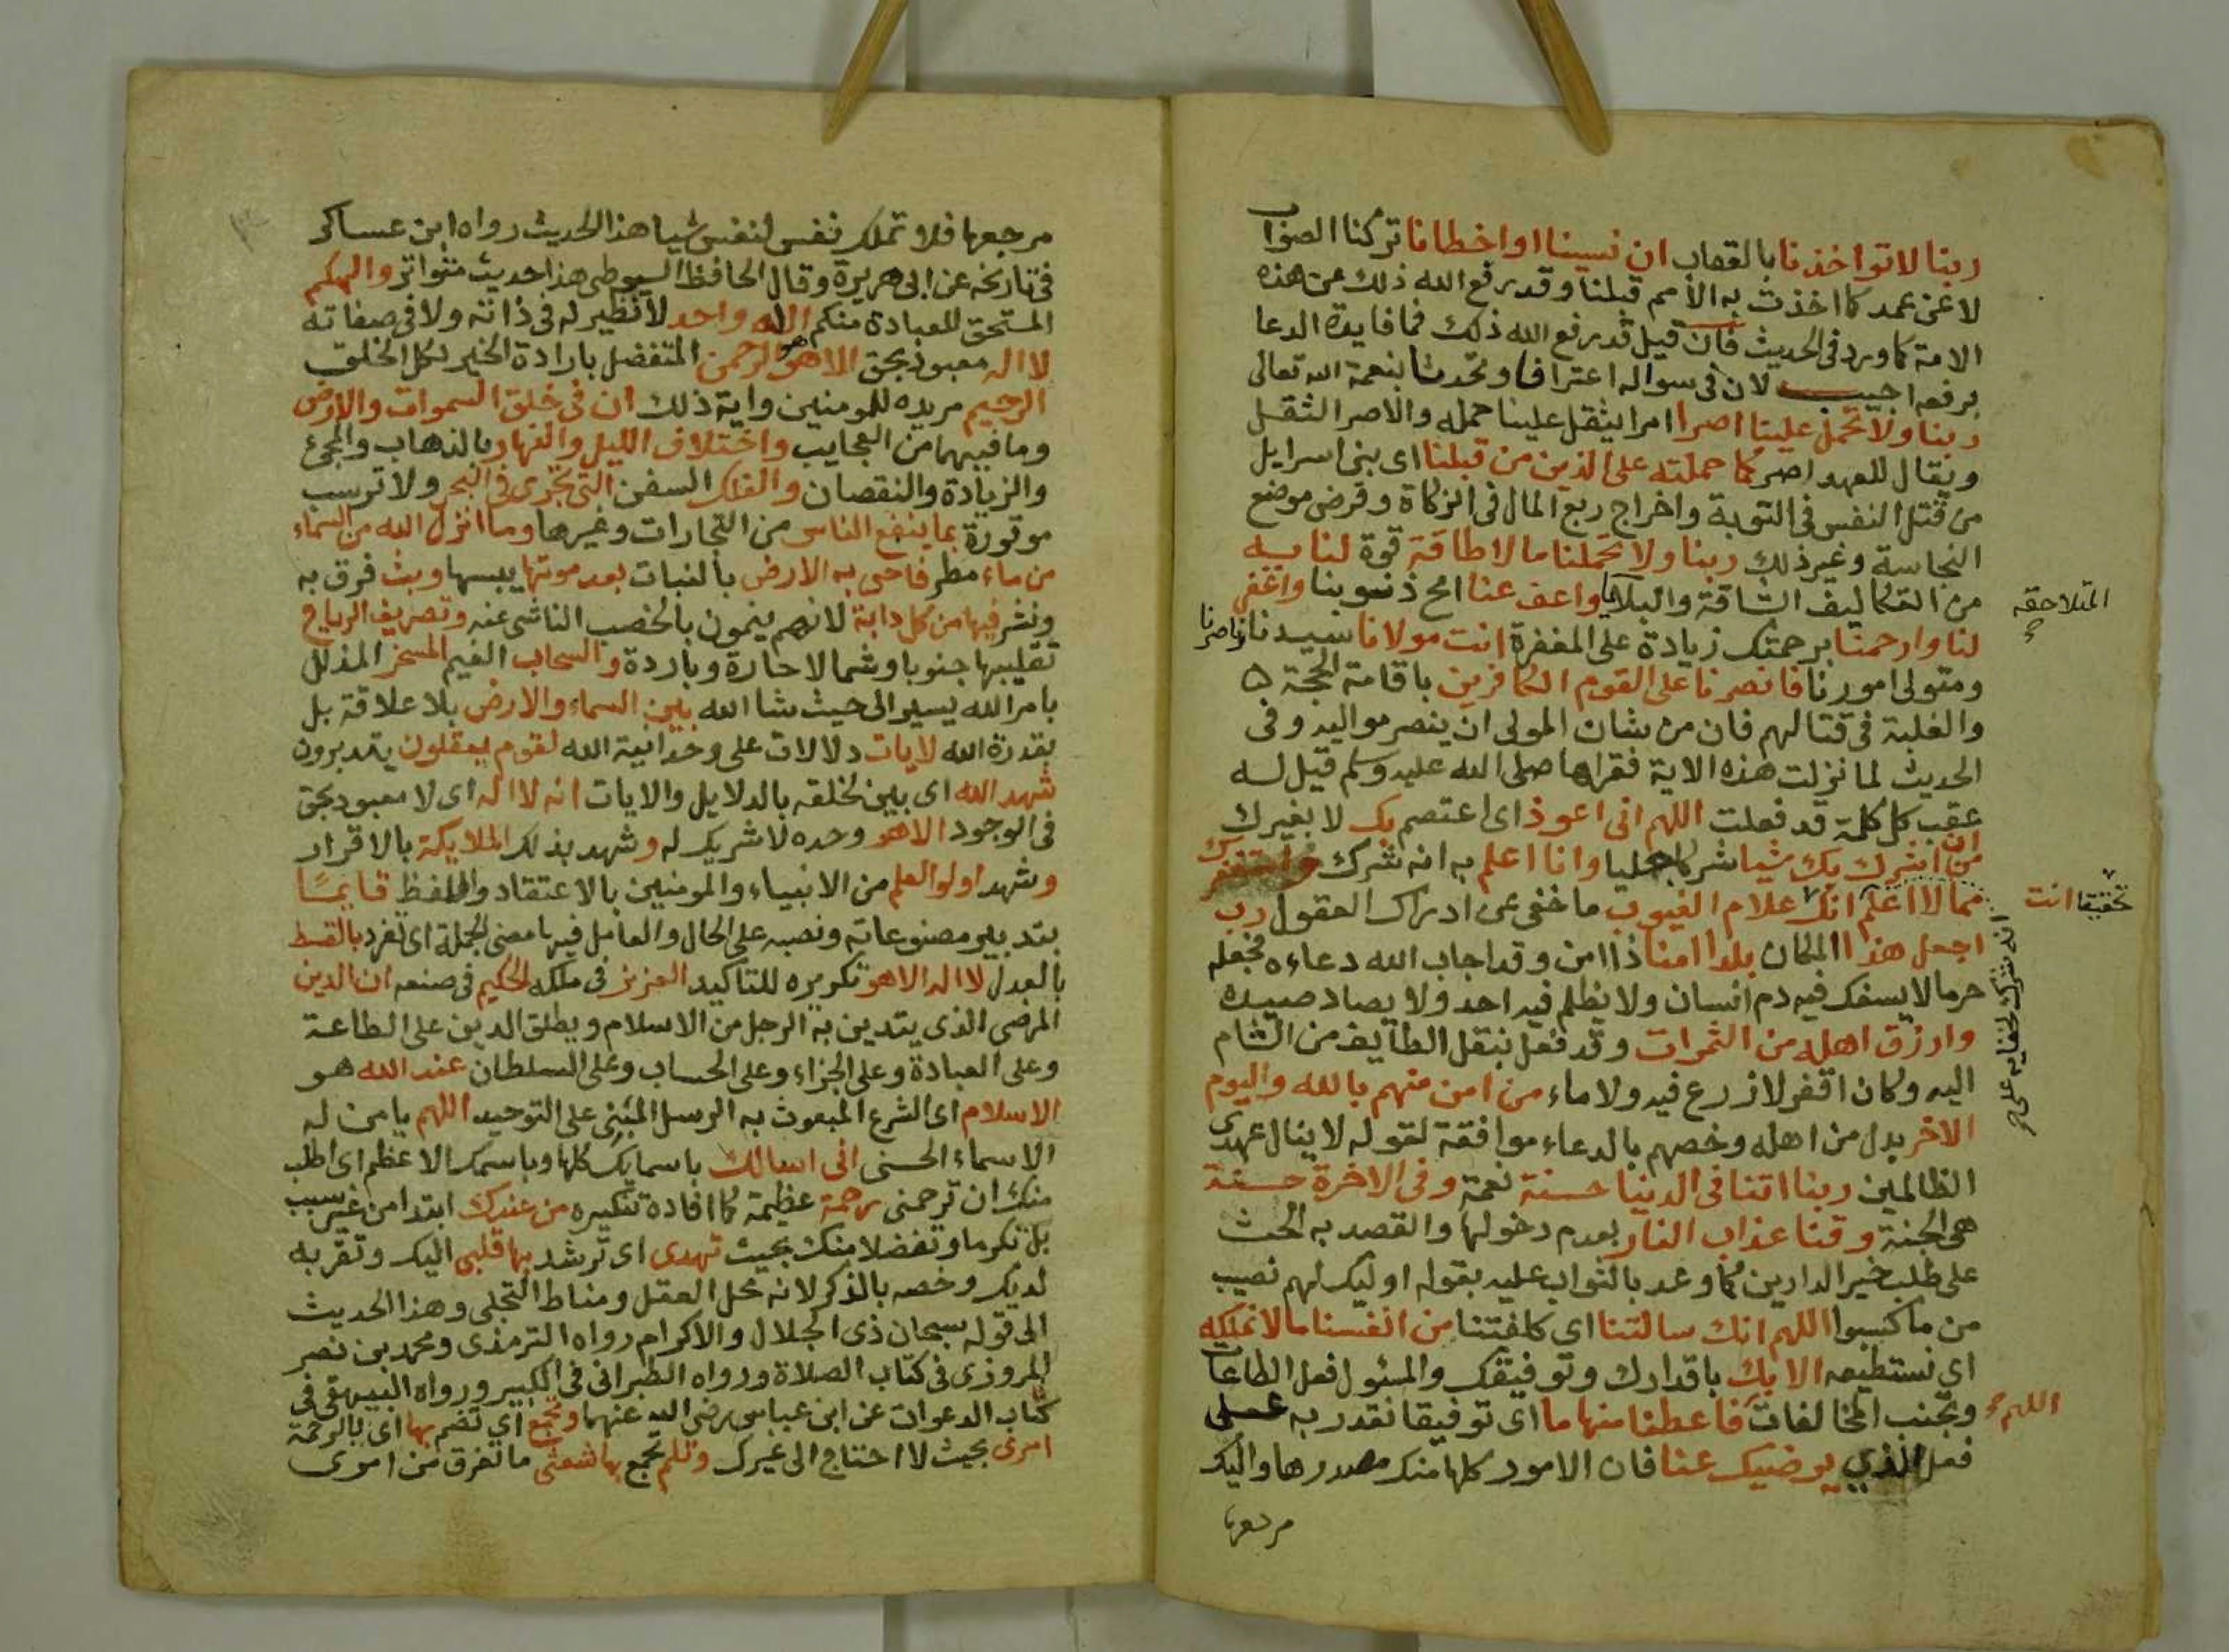 ربنا لا تواخذنا بالعقاب ان نسينا او اخطانا تركنا الصواب
لا عن عمد كما اخذت به الامم قبلنا وقد رفع الله ذلك عن هذه
الامة كما ورد في الحديث فان قيل قد رفع الله ذلك فما فايدة الدعا
برفعه اجيب لان في سواله اعترافا وتحدثا بنعمة الله تعالى
ربنا ولا تحمل علينا اصرا امرا يثقل علينا حمله والاصر الثقل
ويقال للعهد اصر كما حملته على الذين من قبلنا اى بنى اسرايل
من قتل النفس في التوبة واخراج ربع المال في الزكاة وقرض موضع
النجاسة وغير ذلك ربنا ولا تحملنا ما لا طاقة قوة لنا به
من التكاليف الشاقة والبلايا واعف عنا امح ذنوبنا واغفر
المتلاحقه
لنا وارحمنا برحمتك زيادة على المغفرة انت مولانا سيدنا وناصرنا
ومتولى امورنا فانصرنا على القوم الكافرين باقامة الحجة
والغلبة في قتالهم فان من شان المولى ان ينصر مواليه وفى
الحديث لما نزلت هذه الاية فقراها صلى الله عليه وسلم قيل له
عقب كل كلمة قد فعلت اللهم انى اعوذ اى اعتصم بك لا بغيرك
من ان اشرك بك شيا شركا جليا وانا اعلم به انه شرك واستغفرك
مما لا اعلم انك علام الغيوب ما خفى عن ادراك العقول رب
انت تحقيقا
انه شرك لخفايه على
اجعل هذا المكان بلدا امنا ذا امن وقد اجاب الله دعاءه فجعله
حرما لا يسفك فيه دم انسان ولا يظلم فيه احد ولا يصاد صيده
وارزق اهله من الثمرات وقد فعل بنقل الطايف من الشام
اليه وكان اقفر لا زرع فيه ولا ماء من امن منهم بالله واليوم
الاخر بدل من اهله وخصهم بالدعاء موافقة لقوله لا ينال عهدى
الظالمين ربنا اتنا في الدينا حسنة نعمة وفى الاخرة حسنة
هى الجنة وقنا عذاب النار بعدم دخولها والقصد به الحث
على طلب خير الدارين كما وعد بالثواب عليه بقوله اوليك لهم نصيب
من ما كسبوا اللهم انك سالتنا اى كلفتنا من انفسنا ما لا نملكه
اى نستطيعه الا بك باقدارك وتوفيقك والمسئول فعل الطاعات
وتجنب المخالفات فاعطنا منها ما اى توفيقا نقدر به على
اللهم
فعل الذي يرضيك عنا فان الامور كلها منك مصدرها واليك
مرجعها
مرجعها فلا تملك نفس لنفس شيا هذا الحديث رواه ابن عساكر
فى تاريخه عن ابى هريرة وقال الحافظ السيوطى هذا حديث متواتر والهكم
المستحق للعبادة منكم اله واحد لا نظير له فى ذاته ولا فى صفاته
لا اله معبود بحق الا هو هو الرحمن المتفضل بارادة الخير لكل الخلق
الرحيم مريده للمومنين واية ذلك ان فى خلق السموات والارض
وما فيهما من العجايب واختلاف الليل والنهار بالذهاب والمجئ
والزيادة والنقصان والفلك السفن التى تجرى فى البحر ولا ترسب
موقورة بما ينفع الناس من التجارات وغيرها وما انزل الله من السماء
من ماء مطر فاحى به الارض بالنبات بعد موتها يبسها وبث فرق به
ونشر فيها من كل دابة لانهم ينمون بالخصب الناشى عنه وتصريف الرياح
تقليبها جنوبا وشمالا حارة وباردة والسحاب الغيم المسخر المذلل
بامر الله يسير الى حيث شا الله بين السماء والارض بلا علاقة بل
بقدرة الله لايات دلالات على وحدانية الله لقوم يعقلون يتدبرون
شهد الله اى بين لخلقه بالدلايل والايات انه لا اله اى لا معبود بحق
فى الوجود الا هو وحده لا شريك له وشهد بذلك الملايكة بالاقرار
وشهد اولو العلم من الانبياء والمومنين بالاعتقاد واللفظ قايما
بتدبير مصنوعاته ونصبه على الحال والعامل فيها معنى الجملة اى تفرد بالقسط
بالعدل لا اله الا هو تكريره للتاكيد العزيز فى ملكه الحكيم فى صنعه ان الدين
المرضى الذى يتدين به الرجل من الاسلام ويطلق الدين على الطاعة
وعلى العبادة وعلى الجزاء وعلى الحساب وعلى السلطان عند الله هو
الاسلام اى الشرع المبعوث به الرسل المبنى على التوحيد اللهم يا من له
الاسماء الحسنى انى اسالك باسمايك كلها وباسمك الاعظم اى اطلب
منك ان ترحمنى رحمة عظيمة كما افادة تنكيره من عندك ابتدا من غير سبب
بل تكرما وتفضلا منك بحيث تهدى اى ترشد بها قلبى اليك وتقربه
لديك وخصه بالذكر لانه محل العقل ومناط التجلى وهذا الحديث
الى قوله سبحان ذى الجلال والاكرام رواه الترمذى ومحمد بن نصر
المروزى فى كتاب الصلاة ورواه الطبرانى فى الكبير ورواه البيهقى فى
كتاب الدعوات عن ابن عباس رضى الله عنهما وتجمع اى تضم بها اى بالرحمة
امرى بحيث لا احتاج الى غيرك وتلم تجمع بها شعثى ما تفرق من امورى